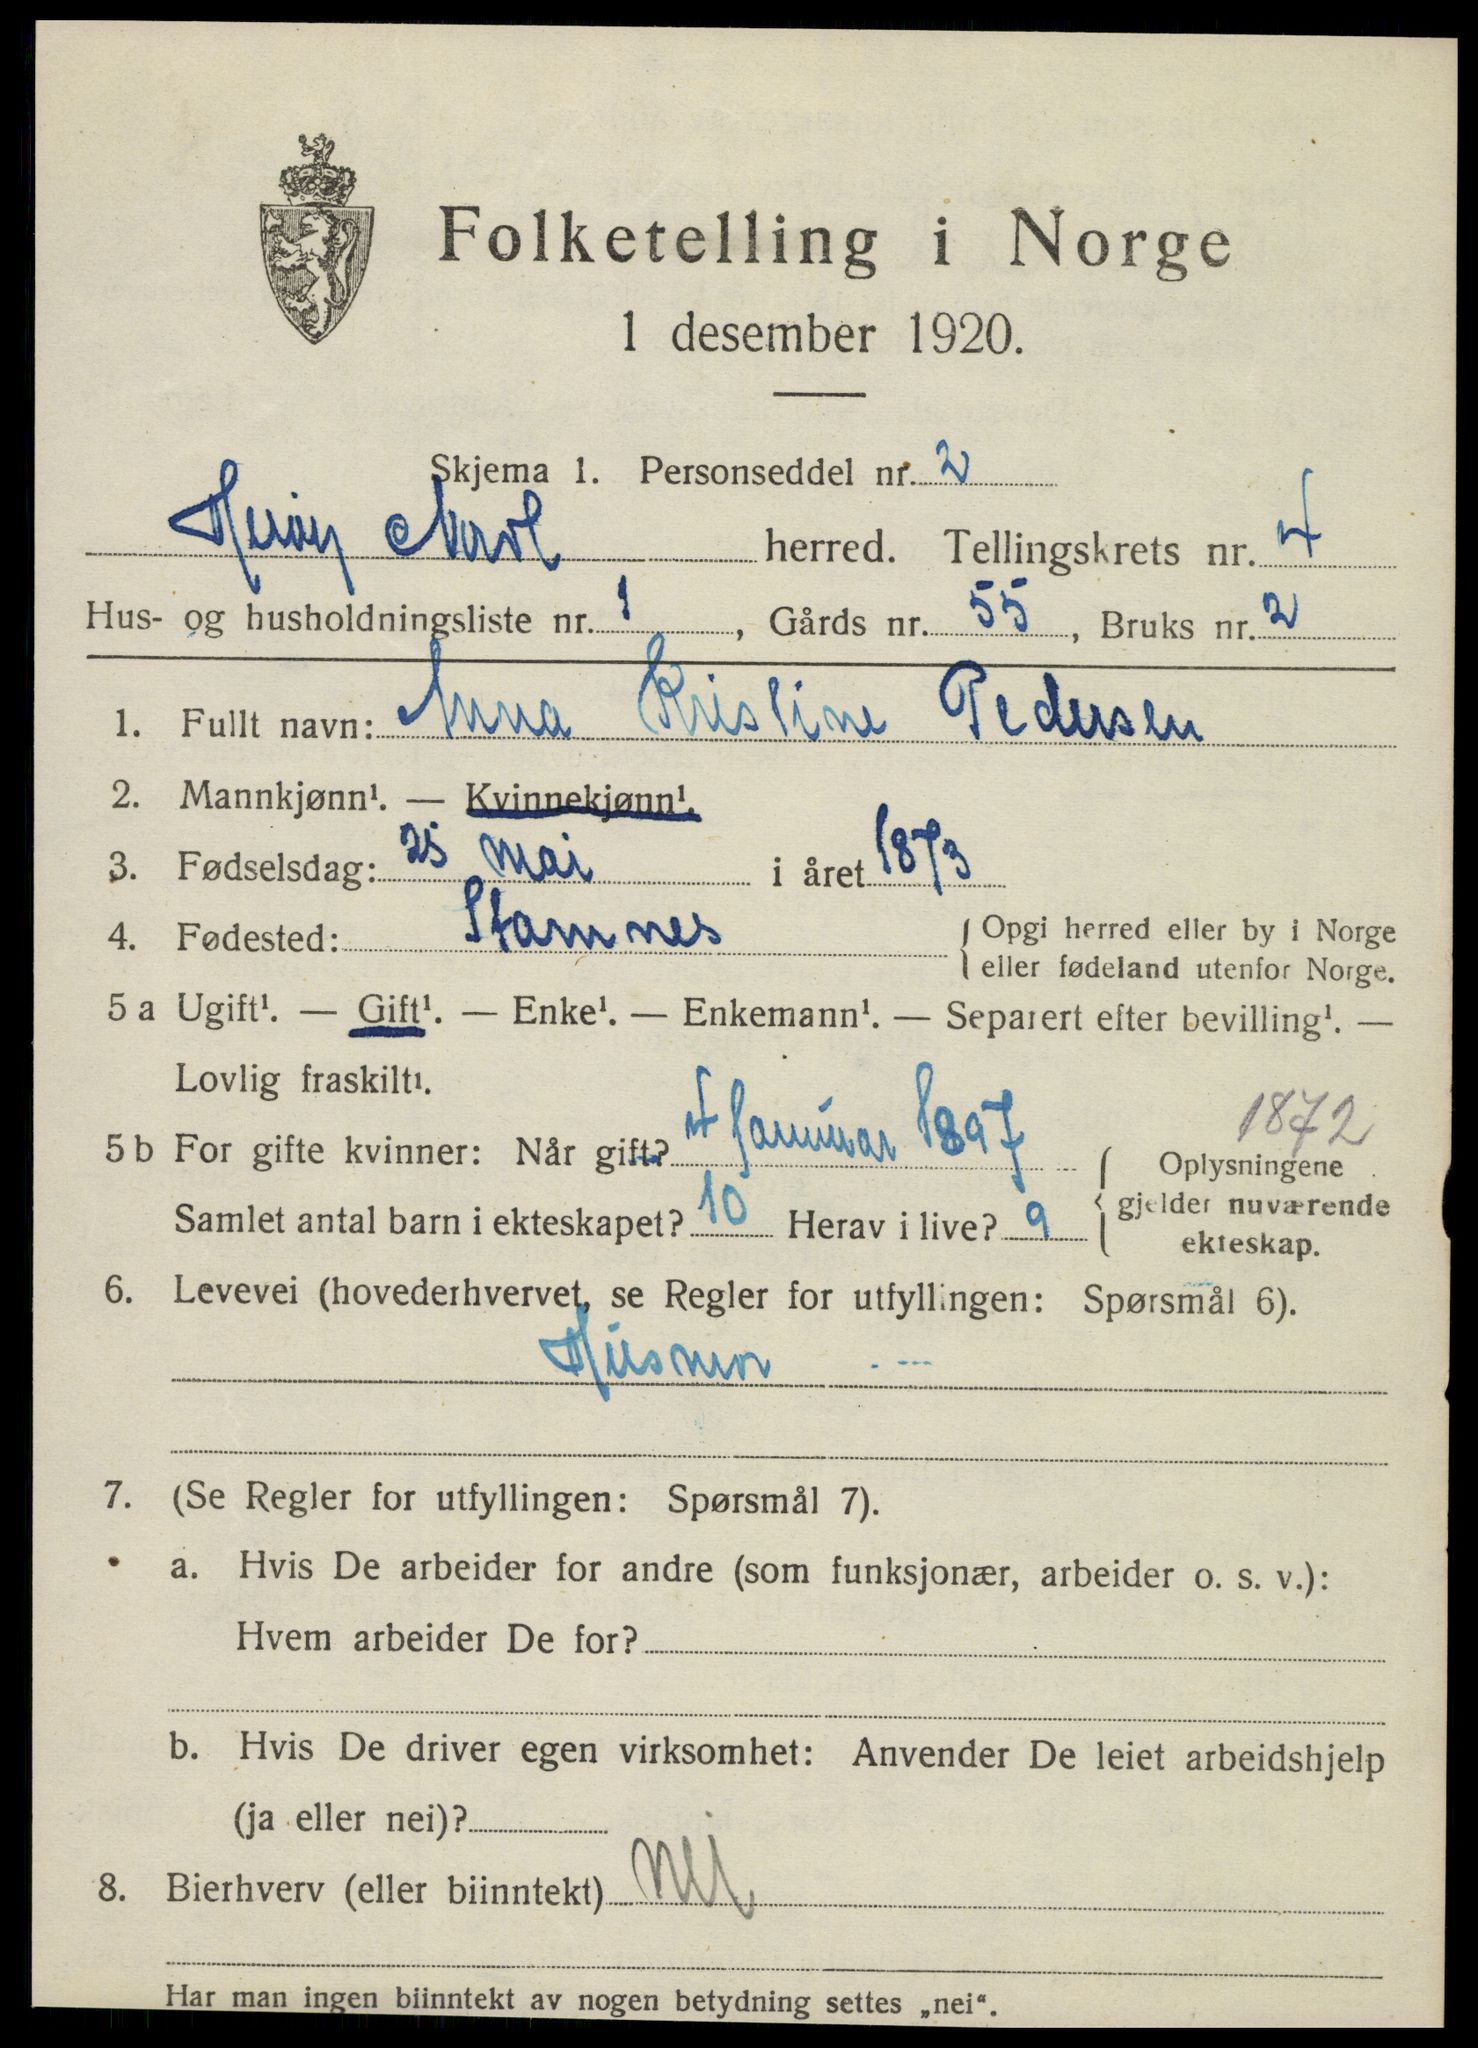 Folketelling i Norge
1 desember 1920.
Skjema 1. Personseddel nr. 2
Herøy Nordl herred. Tellingskrets nr. 4
Hus- og husholdningsliste nr. 1, Gårds nr. 55, Bruks nr. 2
1. Fullt navn: Anna Kristine Pedersen
2. Mannkjønn¹. — Kvinnekjønn¹.
3. Fødselsdag: 25 mai i året 1873
4. Fødested: Stamnes { Opgi herred eller by i Norge
eller fødeland utenfor Norge.
5 a Ugift¹. — Gift¹. — Enke¹. — Enkemann¹. — Separert efter bevilling¹. —
Lovlig fraskilt¹.
1872
5 b For gifte kvinner: Når gift? 4 Januuar 1897 { Oplysningene
gjelder nuværende
ekteskap.
Samlet antal barn i ekteskapet? 10 Herav i live? 9
6. Levevei (hovederhvervet, se Regler for utfyllingen: Spørsmål 6).
Husmor
7. (Se Regler for utfyllingen: Spørsmål 7).
a. Hvis De arbeider for andre (som funksjonær, arbeider o. s. v.):
Hvem arbeider De for?
b. Hvis De driver egen virksomhet: Anvender De leiet arbeidshjelp
(ja eller nei)?
8. Bierhverv (eller biinntekt) nei
Har man ingen biinntekt av nogen betydning settes „nei“.